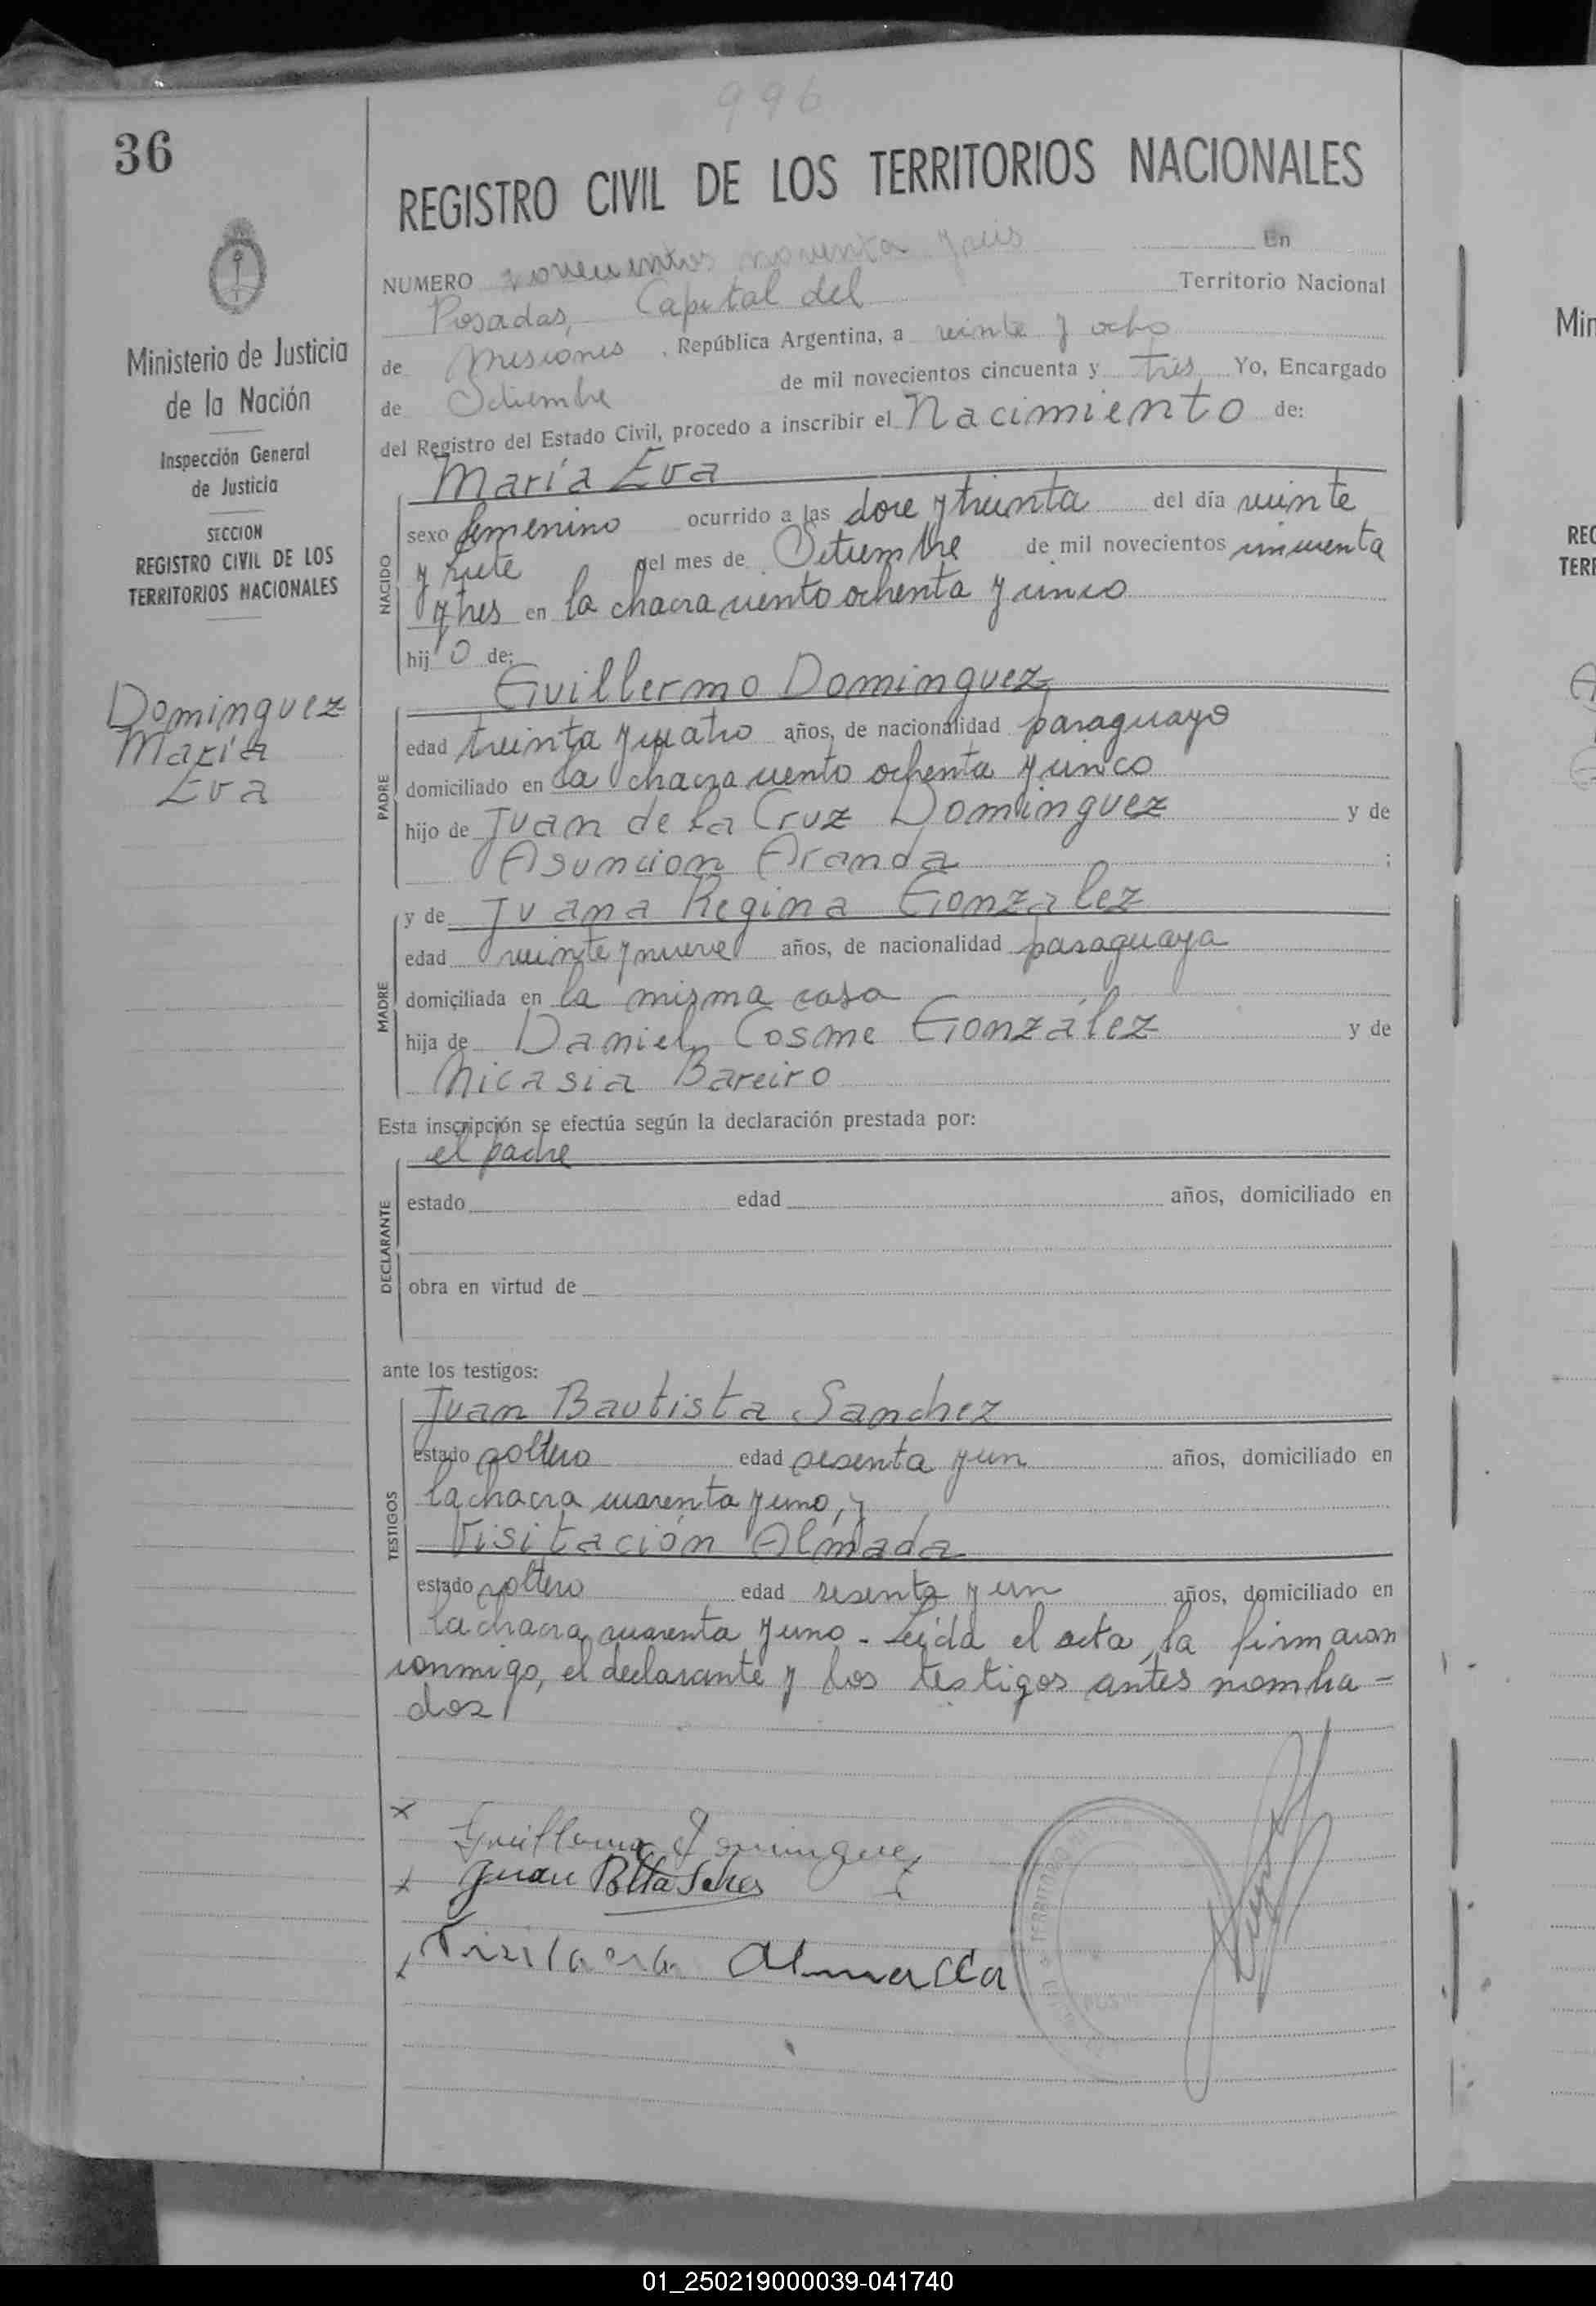 996
36
REGISTRO CIVIL DE LOS TERRITORIOS NACIONALES
NUMERO novecientos noventa y seis En
Posadas, Capital del Territorio Nacional
de Misiones, República Argentina, a veinte y ocho
de Setiembre de mil novecientos cincuenta y tres Yo, Encargado
del Registro del Estado Civil, procedo a inscribir el Nacimiento de:
Ministerio de Justicia
de la Nación
Inspección General
de Justicia
SECCION
REGISTRO CIVIL DE LOS
TERRITORIOS NACIONALES
Dominguez
María
Eva
NACIDO
María Eva
sexo femenino ocurrido a las doce y treinta del día veinte
y siete del mes de Setiembre de mil novecientos cincuenta
y tres en la chacra ciento ochenta y cinco
hijo de:
PADRE
Guillermo Dominguez
edad treinta y cuatro años, de nacionalidad paraguayo
domiciliado en la chacra ciento ochenta y cinco
hijo de Juan de la Cruz Dominguez y de
Asuncion Aranda ;
MADRE
y de Juana Regina Gonzalez
edad veinte y nueve años, de nacionalidad paraguaya
domiciliada en la misma casa
hija de Daniel Cosme González y de
Nicasia Bareiro
Esta inscripción se efectúa según la declaración prestada por:
DECLARANTE
el padre
estado edad años, domiciliado en
obra en virtud de
ante los testigos:
TESTIGOS
Juan Bautista Sanchez
estado soltero edad sesenta y un años, domiciliado en
la chacra cuarenta y uno, y
Visitación Almada
estado soltero edad sesenta y un años, domiciliado en
la chacra cuarenta y uno - Leída el acta, la firmaron
conmigo, el declarante y los testigos antes nombra-
dos
x Guillermo Dominguez
x Juan Btta Schez
Almada
TERRITORIO
Min
REG
TERR
01_250219000039-041740